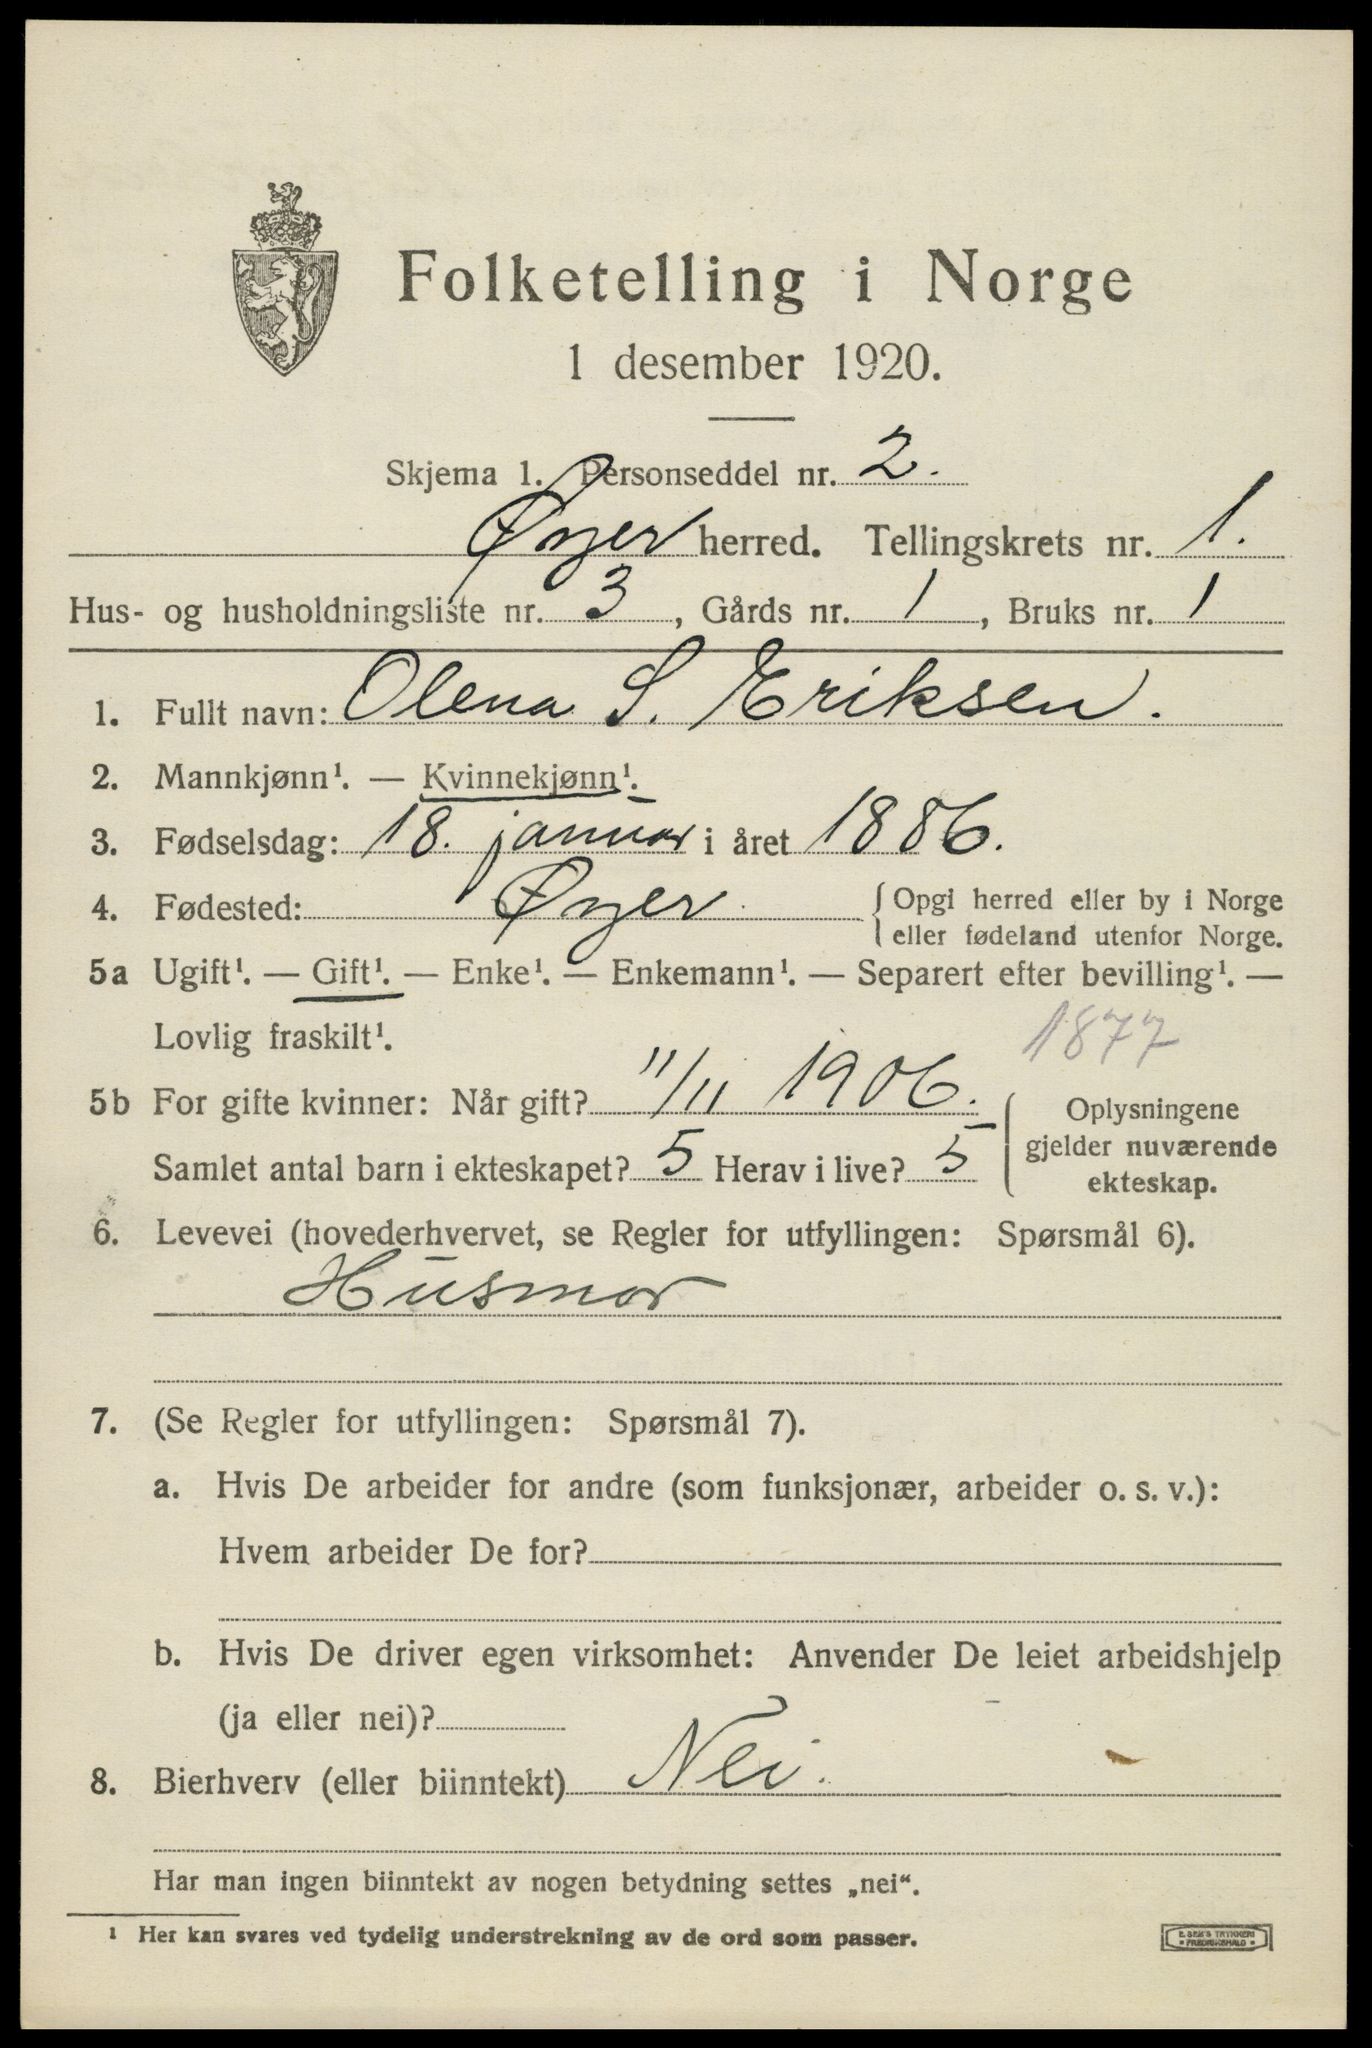 Folketelling i Norge
1 desember 1920.
Skjema 1. Personseddel nr. 2.
Øyer herred. Tellingskrets nr. 1.
Hus- og husholdningsliste nr. 3, Gårds nr. 1, Bruks nr. 1
1. Fullt navn: Olena S. Eriksen.
2. Mannkjønn¹. — Kvinnekjønn¹.
3. Fødselsdag: 18. januar i året 1886.
4. Fødested: Øyer { Opgi herred eller by i Norge
eller fødeland utenfor Norge.
5a Ugift¹. — Gift¹. — Enke¹. — Enkemann¹. — Separert efter bevilling¹. —
Lovlig fraskilt¹. 1877
5b For gifte kvinner: Når gift? 11/11 1906.
Samlet antal barn i ekteskapet? 5 Herav i live? 5
Oplysningene
gjelder nuværende
ekteskap.
6. Levevei (hovederhvervet, se Regler for utfyllingen: Spørsmål 6).
Husmor
7. (Se Regler for utfyllingen: Spørsmål 7).
a. Hvis De arbeider for andre (som funksjonær, arbeider o. s. v.):
Hvem arbeider De for?
b. Hvis De driver egen virksomhet: Anvender De leiet arbeidshjelp
(ja eller nei)?
8. Bierhverv (eller biinntekt) Nei.
Har man ingen biinntekt av nogen betydning settes „nei“.
¹ Her kan svares ved tydelig understrekning av de ord som passer.
E. SEM'S TRYKKERI
• FREDRIKSHALD •